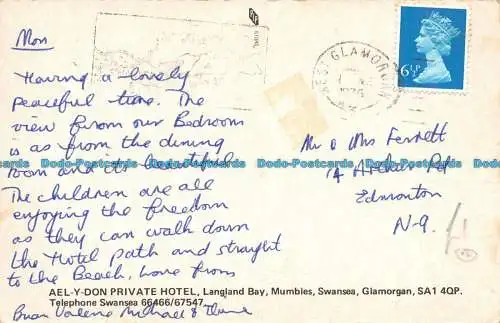 Mon
Having a lovely
peaceful time. The
view from our Bedroom
is as from the dining
room and its beautiful
The children are all
enjoying the freedom
as they can walk down
the Hotel path and straight
to the Beach, Love from
Brian Valerie Michael &
WEST GLAMORGAN
1976
6½P
Mr & Mrs Ferrett
Rd
Edmonton
N-9.
Dodo-Postcards Dodo-Postcards Dodo-Postcards Dodo-Postcards Dodo-Postcards
AEL-Y-DON PRIVATE HOTEL, Langland Bay, Mumbles, Swansea, Glamorgan, SA1 4QP.
Telephone Swansea 66466/67547.